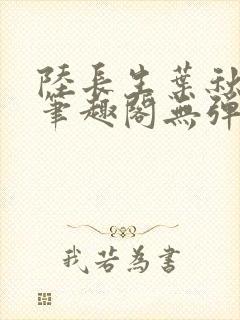 陸長生葉秋
筆趣閣無彈
我若為書